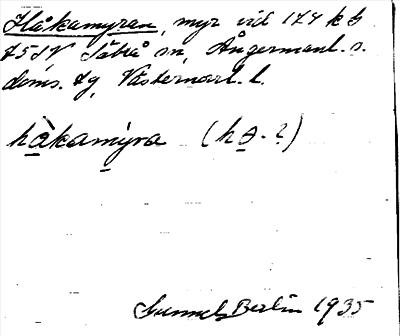 Håkamyran, myr vid 124 k b
75 SV Säbrå sn, Ångermanl. s.
doms. lg, Västernorrl. l.
håkamyra (hə-?)
Gunnel Berlin 1935